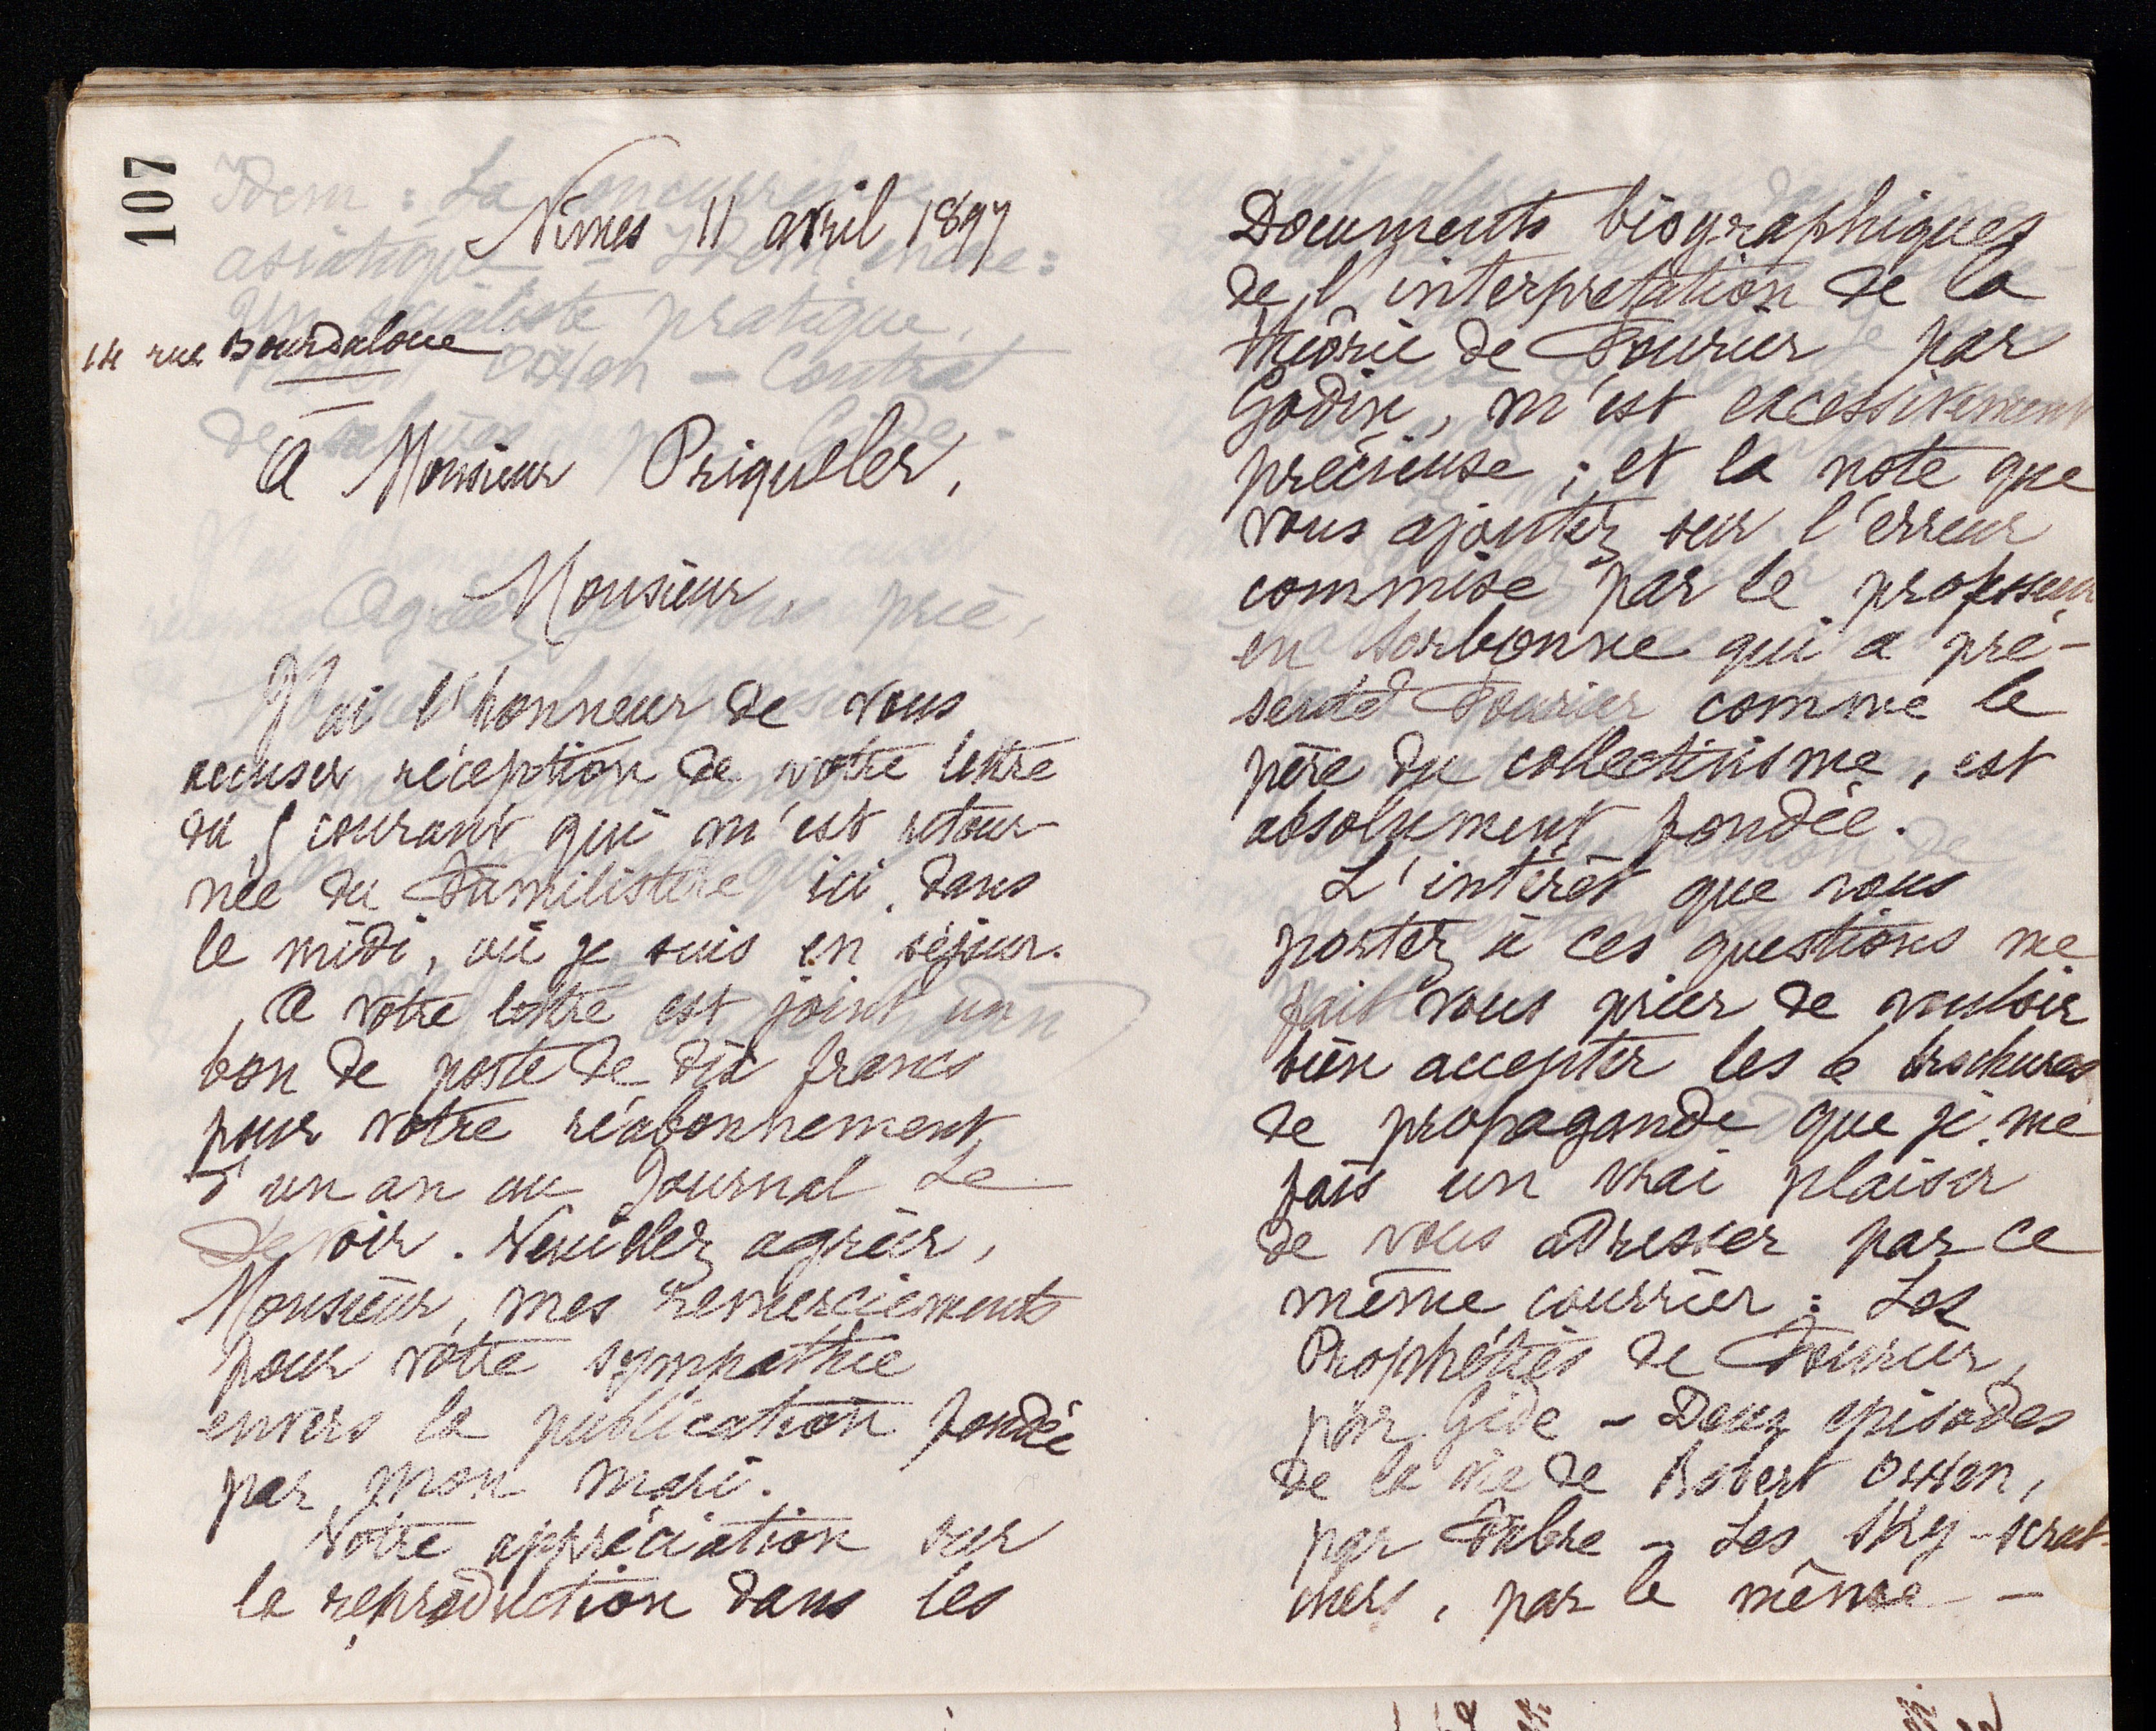 107
Nîmes 11 avril 1897
14 rue Bourdaloue
A Monsieur Priqueler,
Monsieur
J'ai l'honneur de vous
accuser réception de votre lettre
du 5 courant qui m'est retour-
née du Familistère ici, dans
le midi, où je suis en séjour.
A votre lettre est joint un
bon de poste de dix francs
pour votre réabonnement
d'un an au Journal Le
Devoir. Veuillez agréer,
Monsieur, mes remerciements
pour votre sympathie
envers la publication fondée
par mon mari.
Votre appréciation sur
la reproduction dans les
Documents biographiques
de l'interprétation de la
théorie de Fourier par
Godin, m'est excessivement
précieuse ; et la note que
vous ajoutez sur l'erreur
commise par le professeur
en Sorbonne qui a pré-
senté Fourier comme le
père du collectivisme, est
absolument fondée.
L'intérêt que vous
portez à ces questions me
fait vous prier de vouloir
bien accepter les 6 brochures
de propagande que je me
fais un vrai plaisir
de vous adresser par ce
même courrier : Les
Prophéties de Fourier,
par Gide - Deux épisodes
de la vie de Robert Owen,
par Fabre - Les Sky-scrat-
chers, par le même -